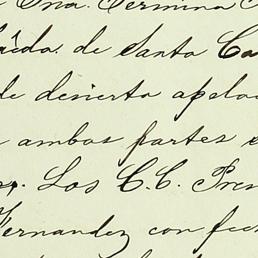 Dna. Fermina
de Santa Ca
de desierta apela
ambas partes
Los C.C. Pres
Fernandez con fec